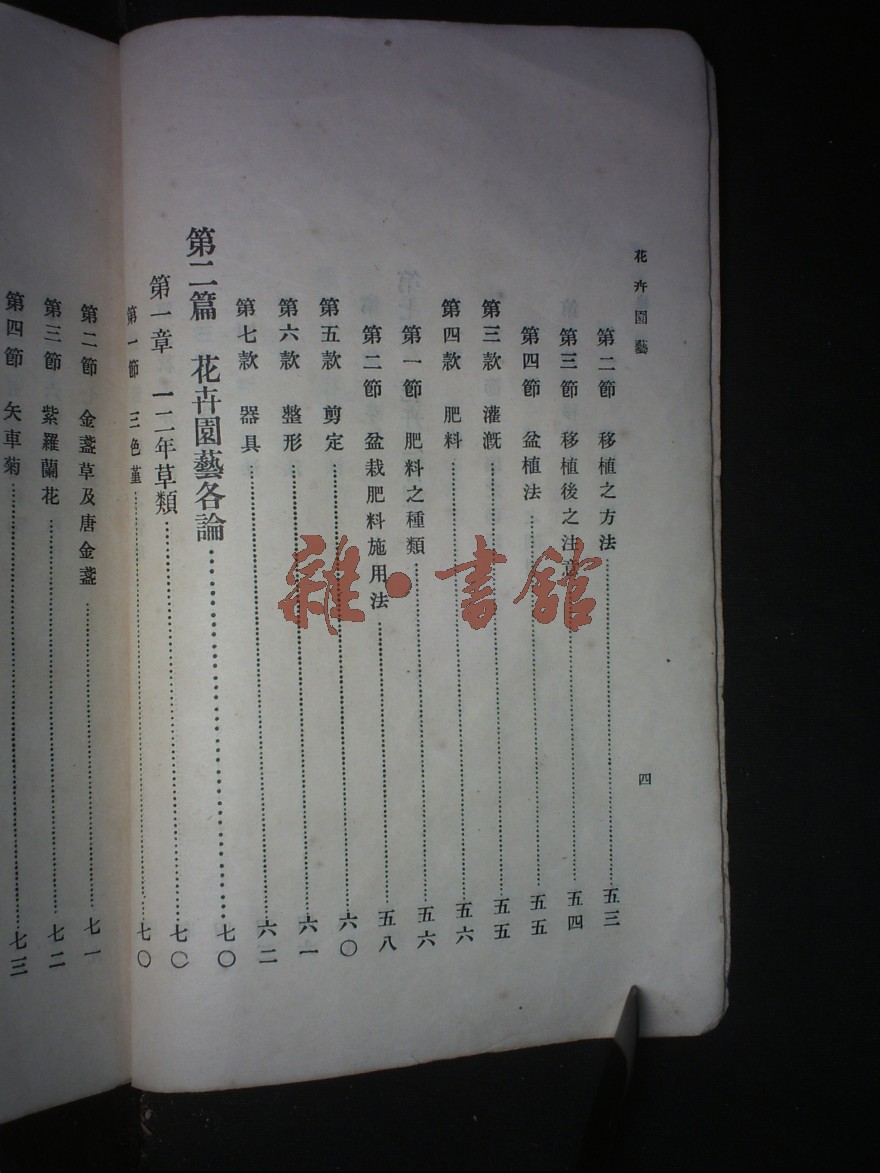 花卉園藝
四
第二節 移植之方法 五三
第三節 移植後之注意 五四
第四節 盆植法 五五
第三款 灌溉 五五
第四款 肥料 五六
第一節 肥料之種類 五六
第二節 盆栽肥料施用法 五八
第五款 剪定 六〇
第六款 整形 六一
第七款 器具 六二
第二篇 花卉園藝各論 七〇
第一章 一二年草類 七〇
第一節 三色菫 七〇
第二節 金盞草及唐金盞 七一
第三節 紫羅蘭花 七二
第四節 矢車菊 七三
雜·書館